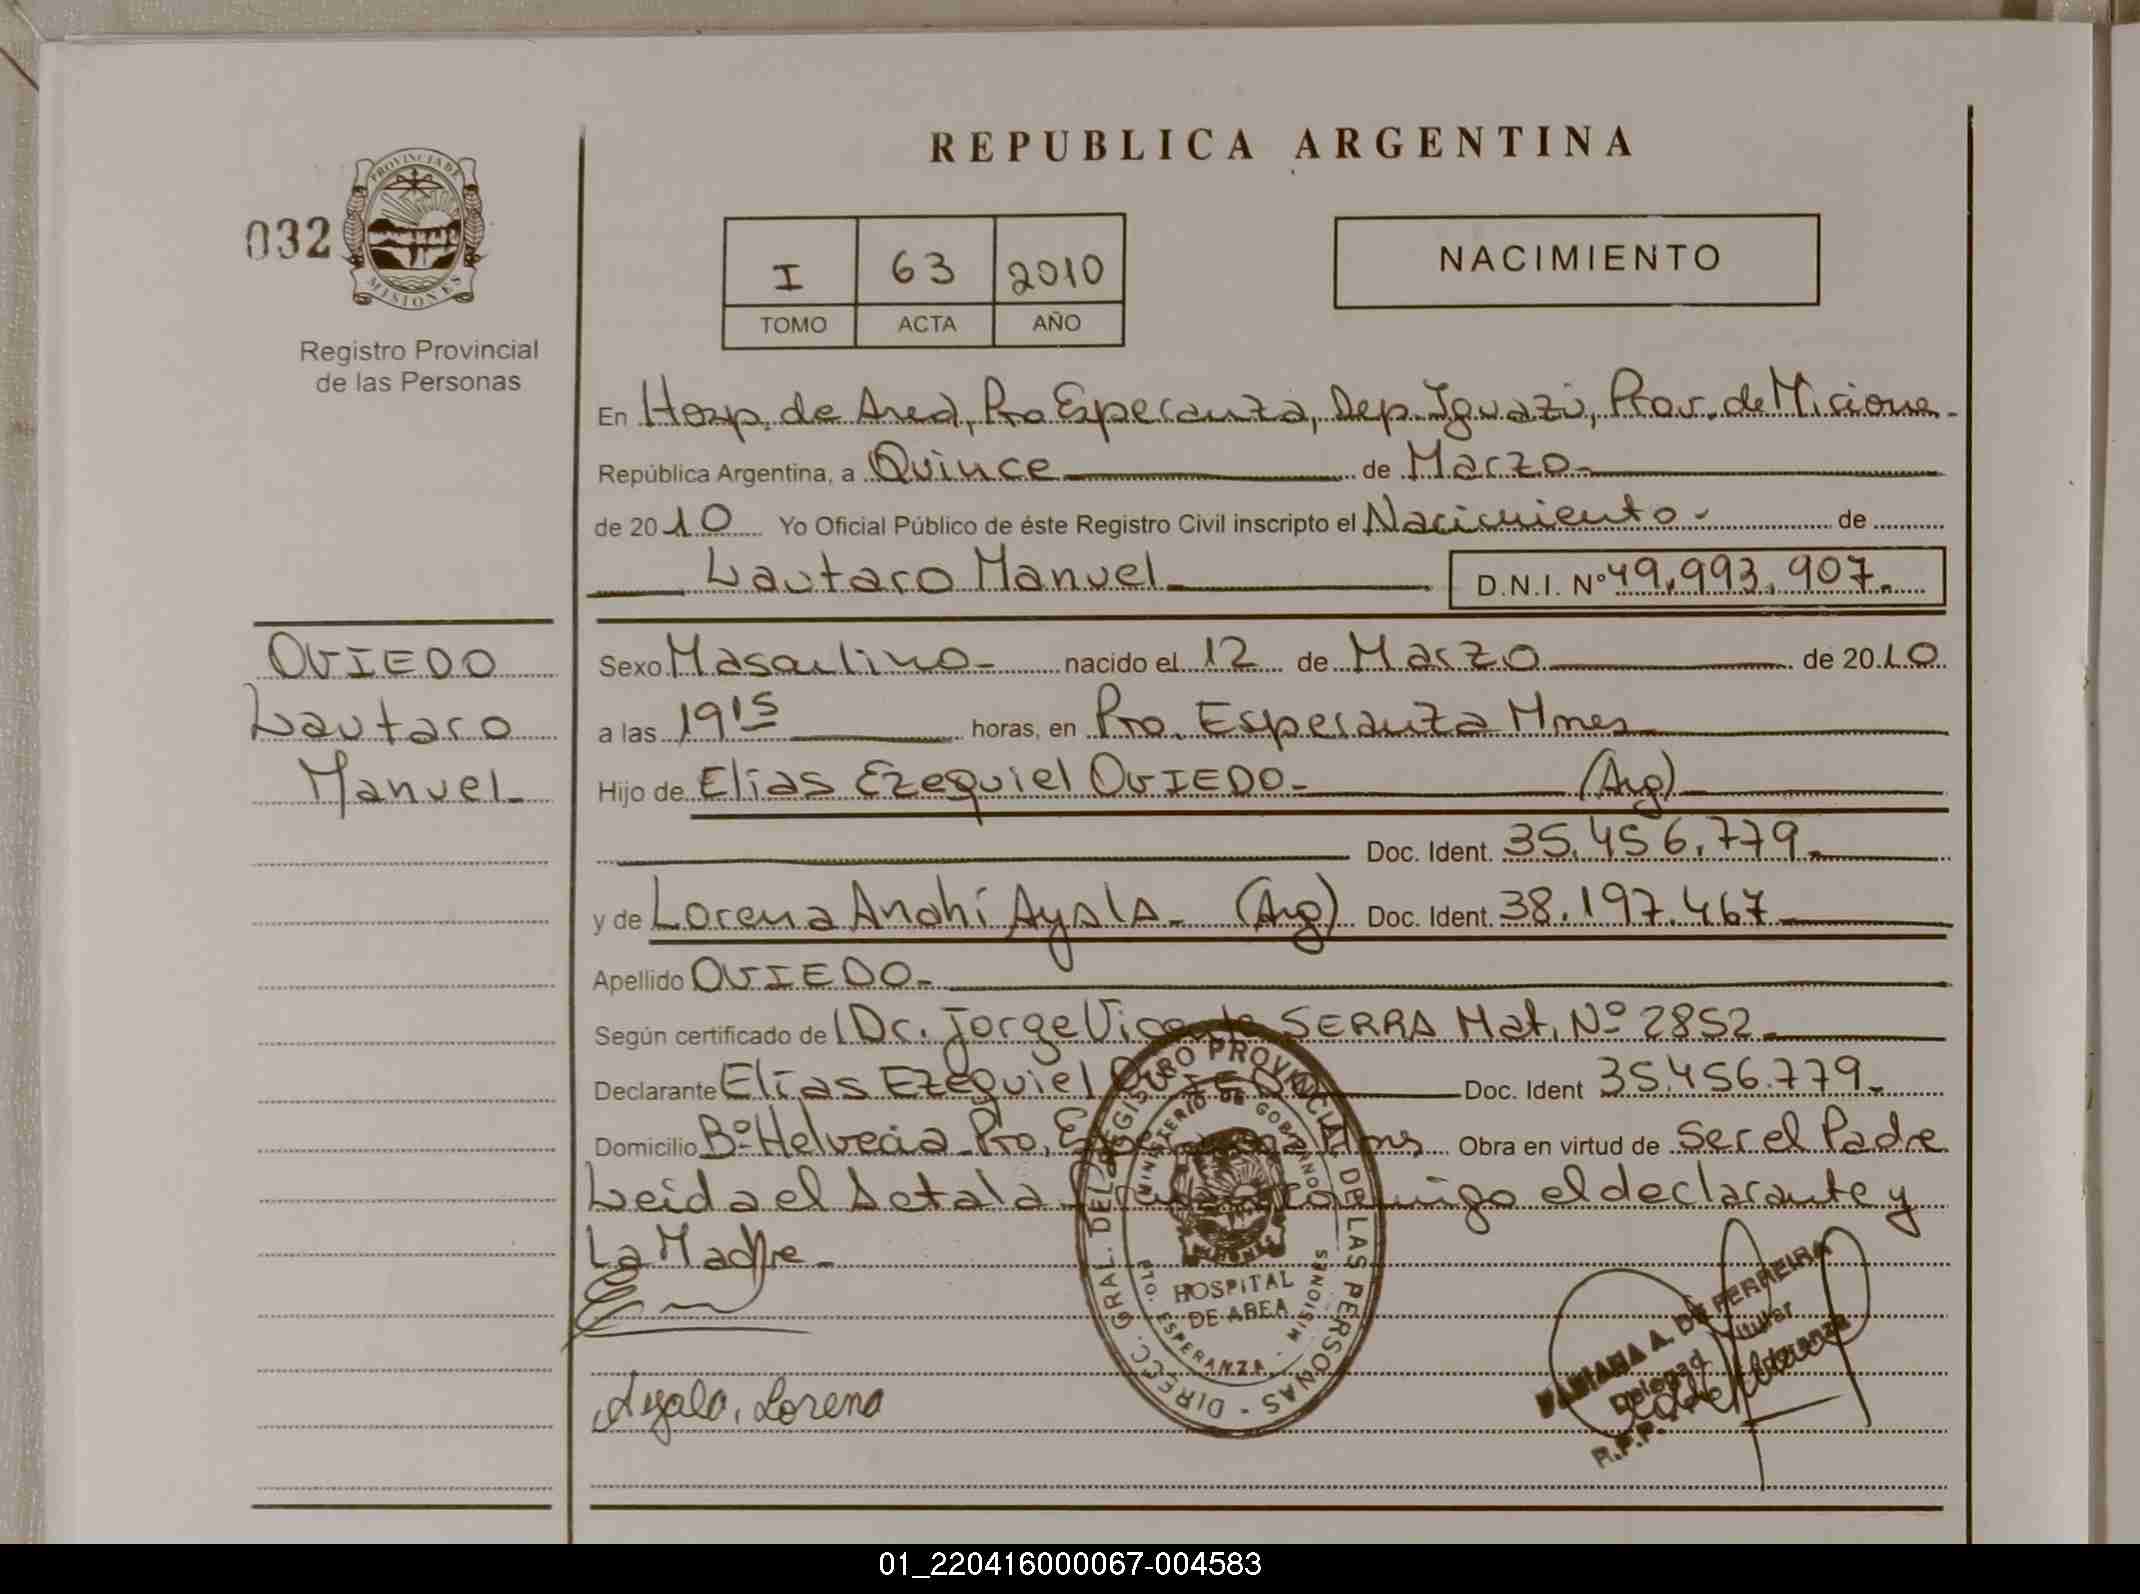 REPUBLICA ARGENTINA
032
PROVINCIA DE
MISIONES
Registro Provincial
de las Personas
I 63 2010
TOMO ACTA AÑO
NACIMIENTO
En Hosp. de Area, Pto Esperanza, Dep. Iguazú, Prov. de Misione-
República Argentina, a Quince de Marzo-
de 2010 Yo Oficial Público de éste Registro Civil inscripto el Nacimiento- de
Lautaro Manuel D.N.I. Nº 49.993.907.-
OVIEDO
Lautaro
Manuel-
Sexo Masculino- nacido el 12 de Marzo de 2010
a las 19 15 horas, en Pto. Esperanza Mnes
Hijo de Elías Ezequiel OVIEDO- (Arg)
Doc. Ident. 35.456.779.-
y de Lorena Anahí Ayala- (Arg) Doc. Ident. 38.197.467
Apellido OVIEDO-
Según certificado de Dr. Jorge Vicente SERRA Mat. Nº 2852
Declarante Elías Ezequiel OVIEDO Doc. Ident 35.456.779.-
Domicilio Bº Helvecia Pto. Esperanza Mnes Obra en virtud de ser el Padre
Leida el Acta la conmigo el declarante y
La Madre-
Ayala, Lorena
DIRECC. GRAL. DEL REGISTRO PROVINCIAL DE LAS PERSONAS -
MINISTERIO DE GOBIERNO
HOSPITAL
DE AREA
PTO. ESPERANZA - MISIONES
FABIANA A. DE FERREIRA
Titular
R.P.P.
01_220416000067-004583